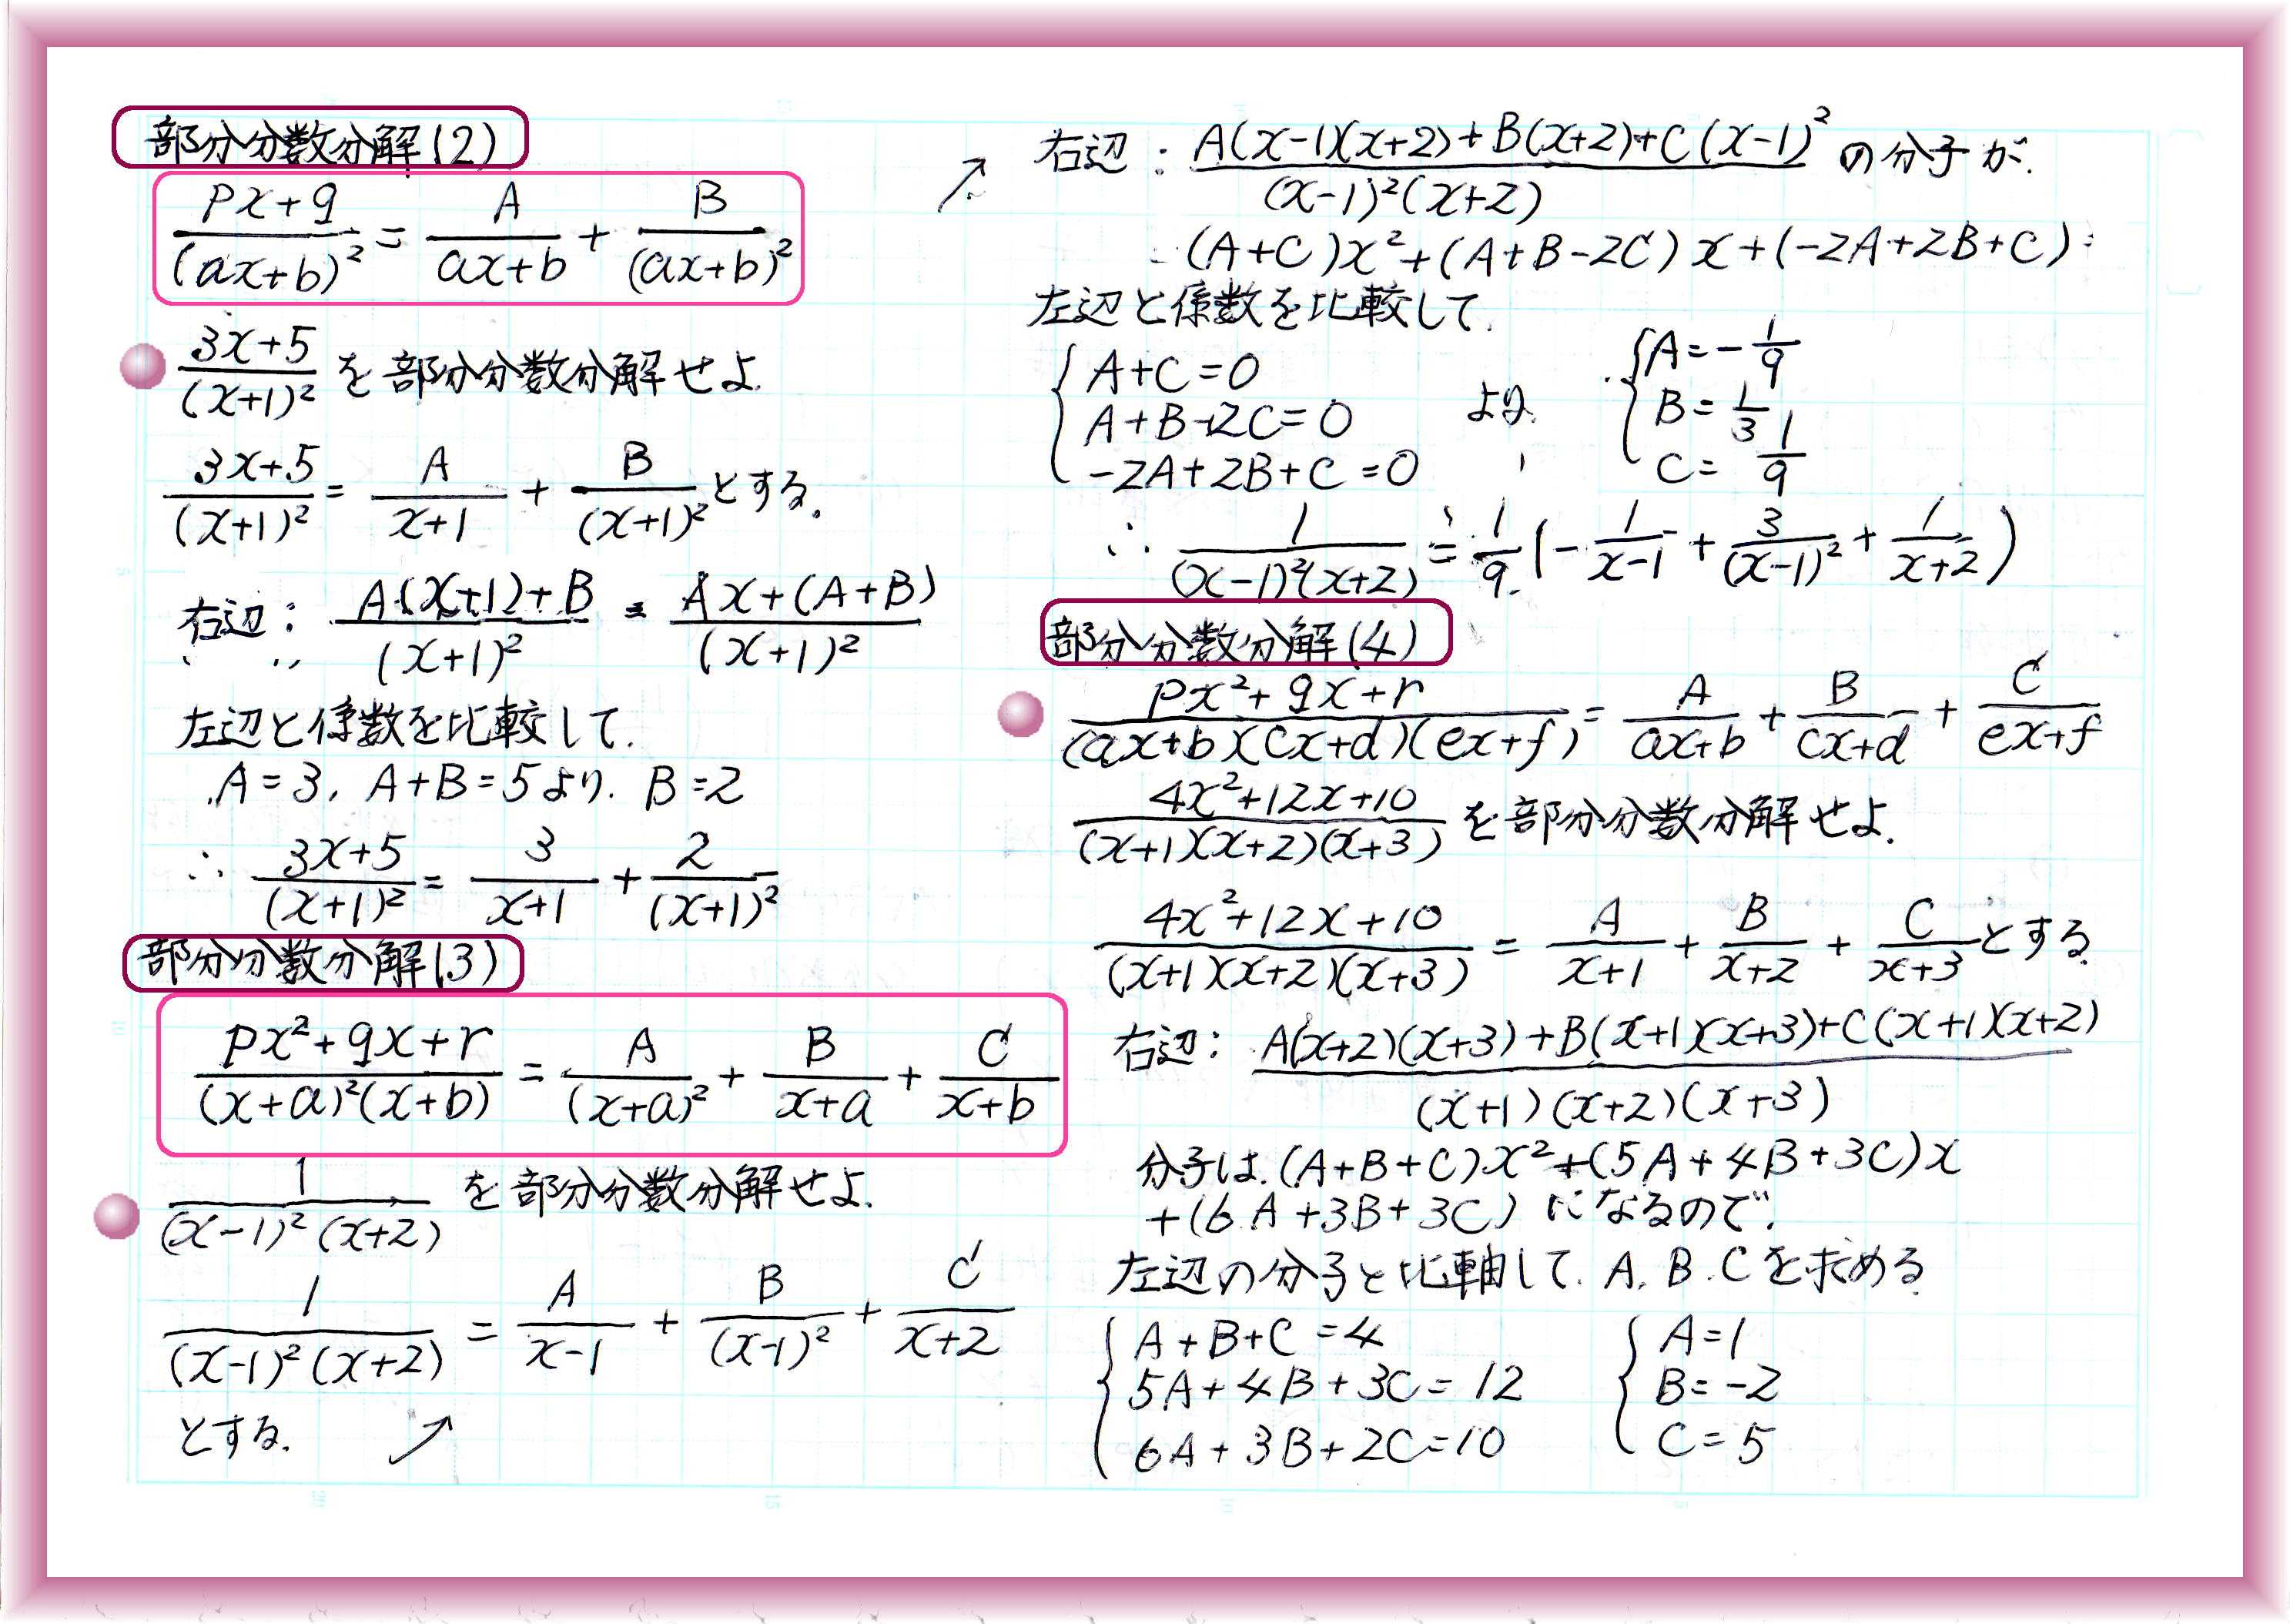 部分分数分解(2)
(px+q)/(ax+b)² = A/(ax+b) + B/(ax+b)²
(3x+5)/(x+1)² を部分分数分解せよ.
(3x+5)/(x+1)² = A/(x+1) + B/(x+1)² とする。
右辺: (A(x+1)+B)/(x+1)² = (Ax+(A+B))/(x+1)²
左辺と係数を比較して.
A=3, A+B=5より. B=2
∴ (3x+5)/(x+1)² = 3/(x+1) + 2/(x+1)²
部分分数分解(3)
(px²+qx+r)/((x+a)²(x+b)) = A/(x+a)² + B/(x+a) + C/(x+b)
1/((x-1)²(x+2)) を部分分数分解せよ.
1/((x-1)²(x+2)) = A/(x-1) + B/(x-1)² + C/(x+2)
とする. ↗
↗ 右辺: (A(x-1)(x+2)+B(x+2)+C(x-1)²)/((x-1)²(x+2)) の分子が.
(A+C)x²+(A+B-2C)x+(-2A+2B+C)
左辺と係数を比較して.
A+C=0
A+B-2C=0 より.
-2A+2B+C=0
A=-1/9
B=1/3
C=1/9
∴ 1/((x-1)²(x+2)) = 1/9(-1/(x-1) + 3/(x-1)² + 1/(x+2))
部分分数分解(4)
(px²+qx+r)/((ax+b)(cx+d)(ex+f)) = A/(ax+b) + B/(cx+d) + C/(ex+f)
(4x²+12x+10)/((x+1)(x+2)(x+3)) を部分分数分解せよ.
(4x²+12x+10)/((x+1)(x+2)(x+3)) = A/(x+1) + B/(x+2) + C/(x+3) とする.
右辺: (A(x+2)(x+3)+B(x+1)(x+3)+C(x+1)(x+2))/((x+1)(x+2)(x+3))
分子は.(A+B+C)x²+(5A+4B+3C)x
+(6A+3B+3C)になるので.
左辺の分子と比軸して. A. B. Cを求める
A+B+C=4
5A+4B+3C=12
6A+3B+2C=10
A=1
B=-2
C=5